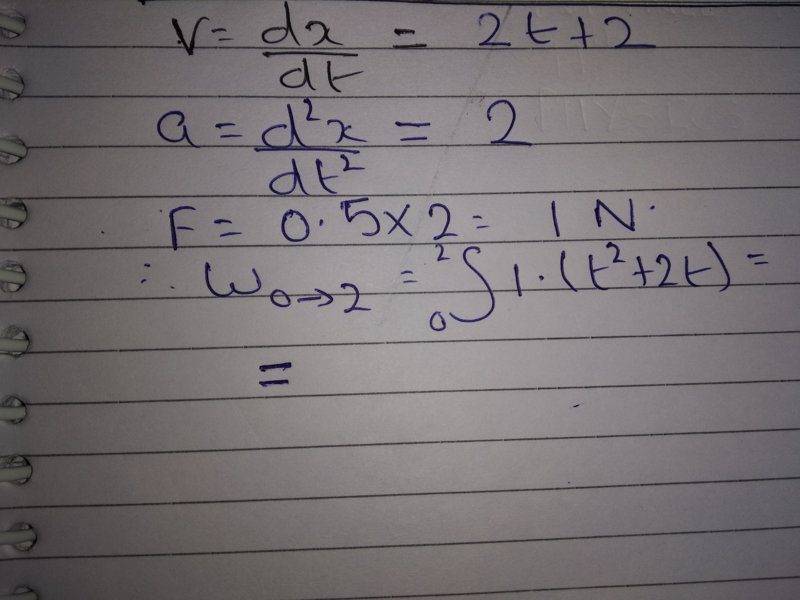 V = dx/dt = 2t+2
a = d²x/dt² = 2
F = 0.5×2 = 1 N.
∴ W₀→₂ = ²∫₀ 1·(t²+2t) =
=